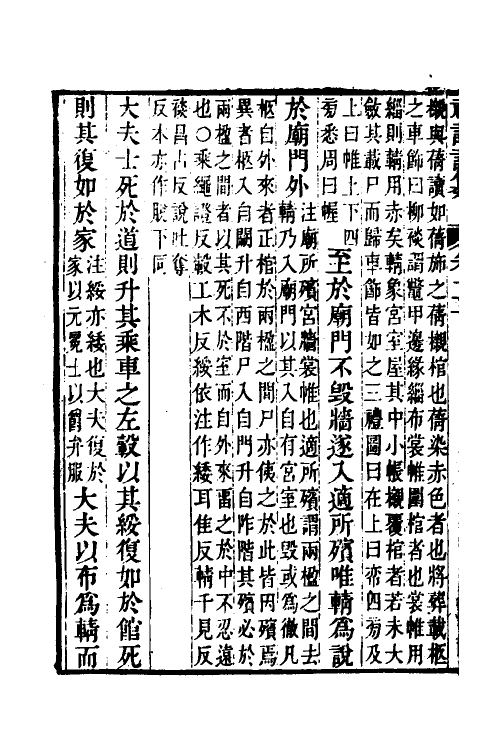 櫬與蒨讀如蒨旆之蒨櫬棺也蒨染赤色者也將葬載柩
之車飾曰柳裧謂鼈甲邊緣緇布裳帷圍棺者也裳帷用
緇則輤用赤矣輤象宮室屋其中小帳櫬覆棺者若未大
斂其載尸而歸車飾皆如之三禮圖曰在上曰帟四旁及
上曰帷上下四
旁悉周曰幄
至於廟門不毀牆遂入適所殯唯輤爲說
於廟門外
注廟所殯宮牆裳帷也適所殯謂兩楹之間去
輤乃入廟門以其入自有宮室也毀或爲徹凡
柩自外來者正棺於兩楹之間尸亦侇之於此皆因殯焉
異者柩入自闕升自西階尸入自門升自阼階其殯必於
兩楹之間者以其死不於室而自外來留之於中不忍遠
也○乘繩證反轂工木反綏依注作緌耳隹反輤千見反
裧昌占反說吐奪
反本亦作脫下同
大夫士死於道則升其乘車之左轂以其綏復如於館死
則其復如於家
注綏亦緌也大夫復於
家以元冕士以爵弁服
大夫以布爲輤而